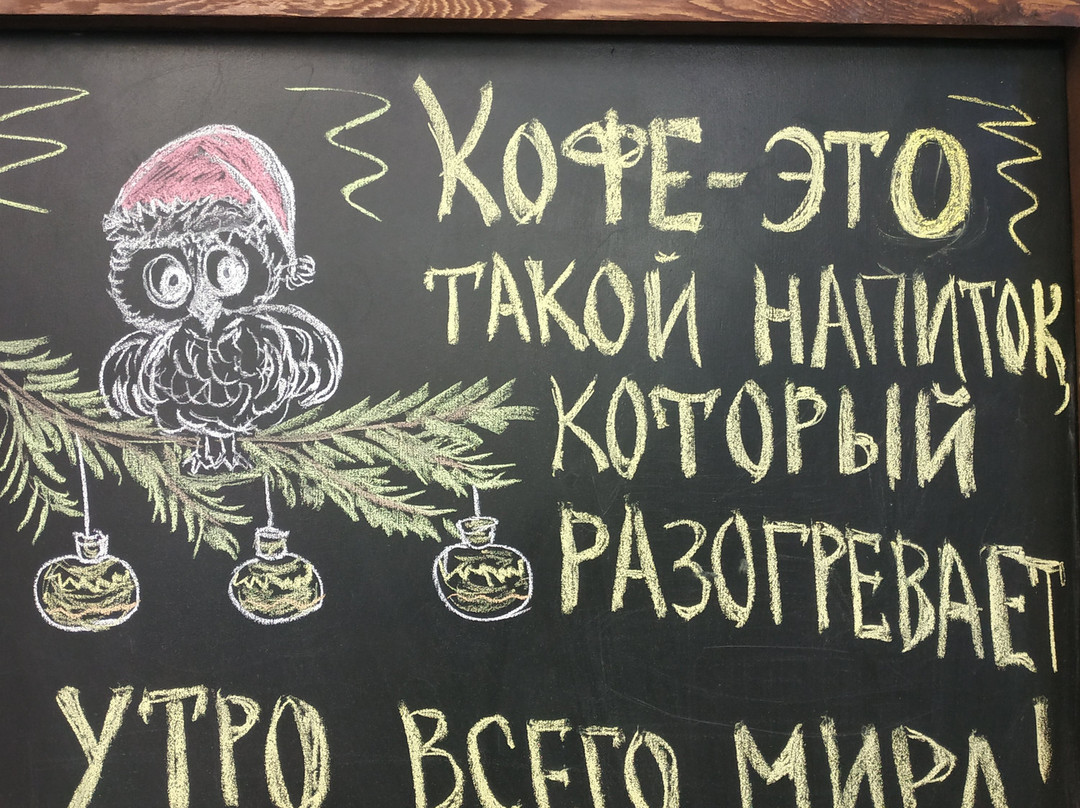 КОФЕ-ЭТО
ТАКОЙ НАПИТОК,
КОТОРЫЙ
РАЗОГРЕВАЕТ
УТРО ВСЕГО МИРА!